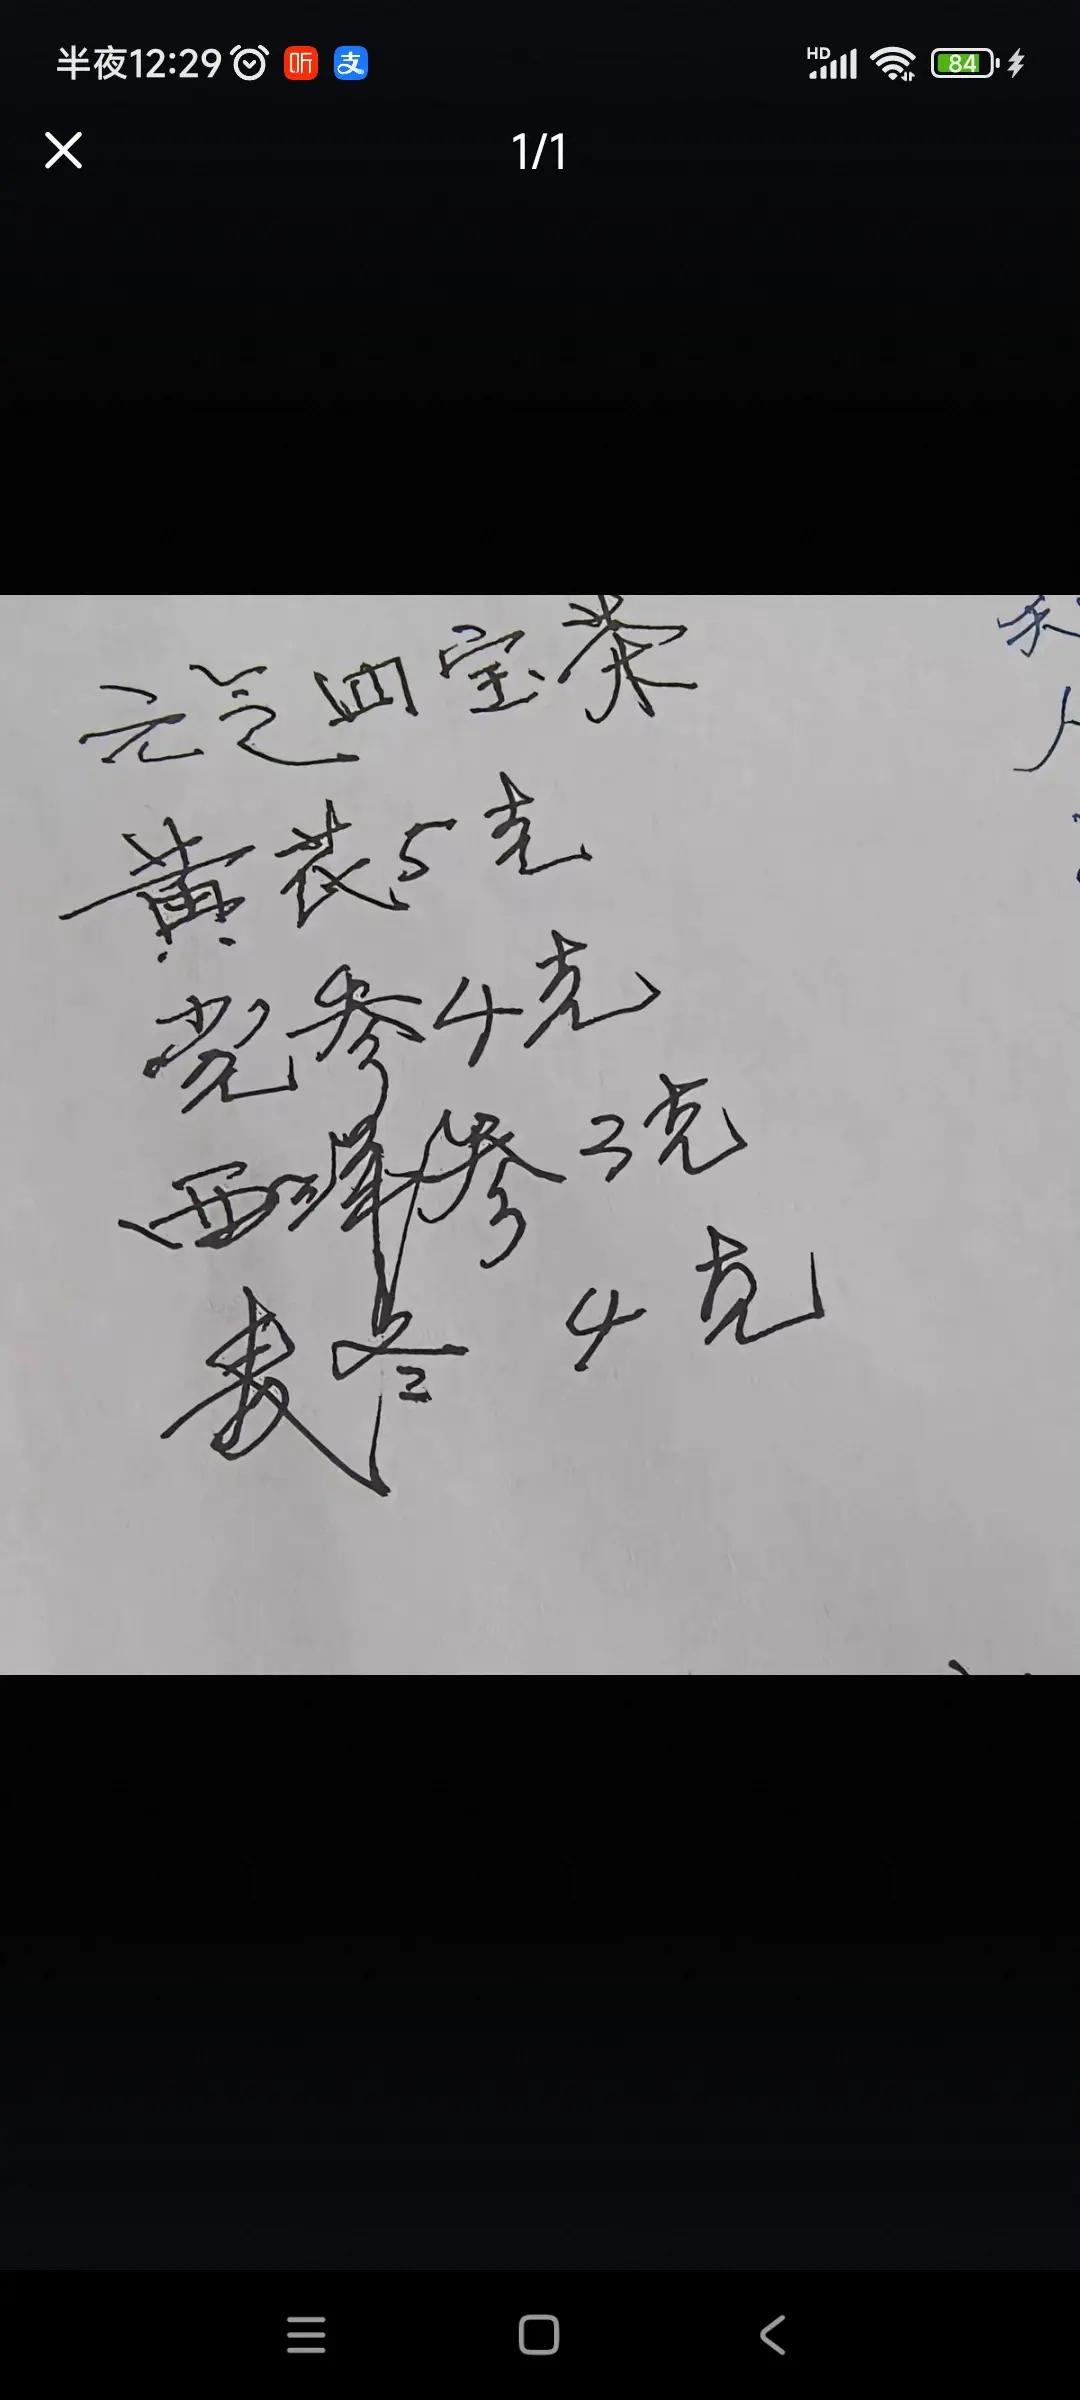 半夜12:29 听 支 HD 84
1/1
元气四宝茶
黄芪5克
党参4克
西洋参3克
麦冬 4克